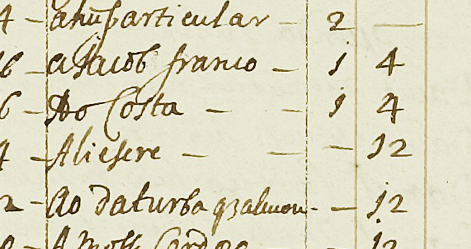 4 – a hũ particular – 2 —
6 – a Jacob franco – 1 4
6 – Ao Costa – – 1 4
4 – Aliesere – – – 12
2 – Ao da turba – 12
Cardozo 12